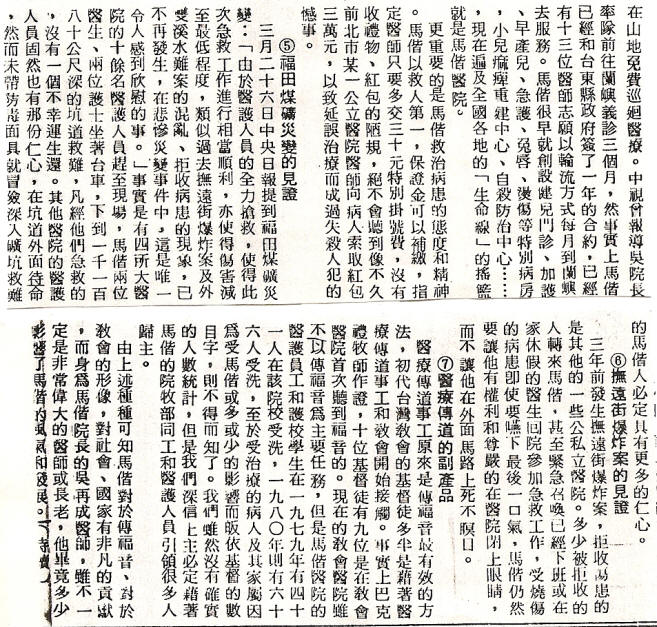 在山地免費巡迴醫療。中視曾報導吳院長
率隊前往蘭嶼義診三個月，然事實上馬偕
已經和台東縣政府簽了一年的合約，已經
有十三位醫師志願以輪流方式每月到蘭嶼
去服務。馬偕很早就創設健兒門診、加護
、早產兒、急護、兔唇、燙傷等特別病房
，小兒痲痺重建中心、自殺防治中心……
，現在遍及全國各地的「生命線」的搖籃
就是馬偕醫院。
更重要的是馬偕救治病患的態度和精神
。馬偕以救人第一，保證金可以補繳，指
定醫師只要多交三十元特別掛號費，沒有
收禮物、紅包的陋規，絕不會聽到像不久
前北市某一公立醫院醫師向病人索取紅包
三萬元，以致延誤治療而成過失殺人犯的
憾事。
⑤福田煤礦災變的見證
三月二十六日中央日報提到福田煤礦災
變：「由於醫護人員的全力搶救，使得此
次急救工作進行相當順利，亦使得傷害減
至最低程度，類似過去撫遠街爆炸案及外
雙溪水難案的混亂、拒收病患的現象，已
不再發生，在悲慘災變事件中，這是唯一
令人感到欣慰的事。」事實是有四所大醫
院的十餘名醫護人員趕至現場，馬偕兩位
醫生、兩位護士坐著台車，下到一千一百
八十公尺深的坑道救難，凡經他們急救的
，沒有一個不幸運生還。其他醫院的醫護
人員固然也有那份仁心，在坑道外面待命
，然而未帶防毒面具就冒險深入礦坑救難
的馬偕人必定具有更多的仁心。
⑥撫遠街爆炸案的見證
三年前發生撫遠街爆炸案，拒收傷患的
是其他的一些公私立醫院。多少被拒收的
人轉來馬偕，甚至緊急召喚已經下班或在
家休假的醫生回院參加急救工作，受燒傷
的病患即使要嚥下最後一口氣，馬偕仍然
要讓他有權利和尊嚴的在醫院閉上眼睛，
而不讓他在外面馬路上死不瞑目。
⑦醫療傳道的副產品
醫療傳道事工原來是傳福音最有效的方
法，初代台灣教會的基督徒多半是藉著醫
療傳道事工和教會開始接觸。事實上巴克
禮牧師作證，十位基督徒有九位是在教會
醫院首次聽到福音的。現在的教會醫院雖
不以傳福音為主要任務，但是馬偕醫院的
醫護員工和護校學生在一九七九年有四十
一人在該院校受洗，一九八〇年則有六十
六人受洗，至於受治療的病人及其家屬因
為受馬偕或多或少的影響而皈依基督的數
目字，則不得而知了。我們雖然沒有確實
的人數統計，但是我們深信上主必定藉著
馬偕的院牧部同工和醫護人員引領很多人
歸主。
由上述種種可知馬偕對於傳福音、對於
教會的形像，對社會、國家有非凡的貢獻
，而身為馬偕院長的吳再成醫師，雖不一
定是非常偉大的醫師或長老，他畢竟多少
影響了馬偕的風氣和發展。